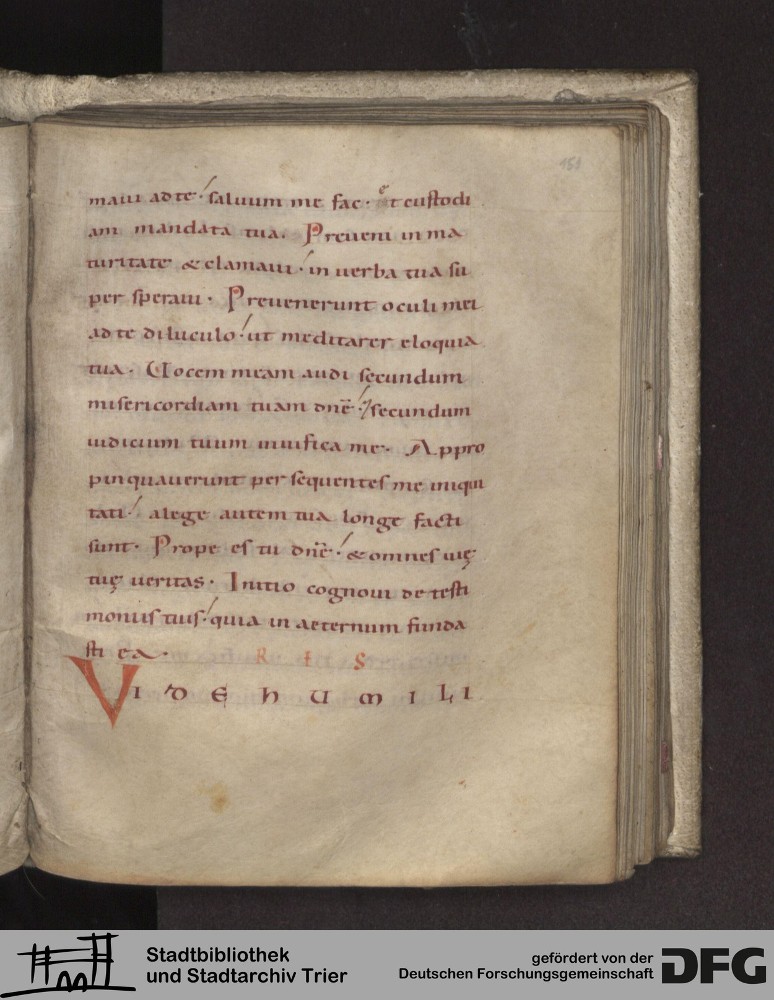 151
maui ad te saluum me fac. et custodi
am mandata tua. Preueni in ma
turitate & clamaui in uerba tua su
per speraui. Preuenerunt oculi mei
ad te diluculo ut meditarer eloquia
tua. Uocem meam audi secundum
misericordiam tuam dnē secundum
iudicium tuum uiuifica me. Appro
pinquauerunt persequentes me iniqui
tati alege autem tua longe facti
sunt. Prope es tu dnē & omnes uię
tuę ueritas. Initio cognoui de testi
moniis tuis quia in aeternum funda
sti ea. R E S
VIDE HUMILI
Stadtbibliothek
und Stadtarchiv Trier
gefördert von der
Deutschen Forschungsgemeinschaft
DFG